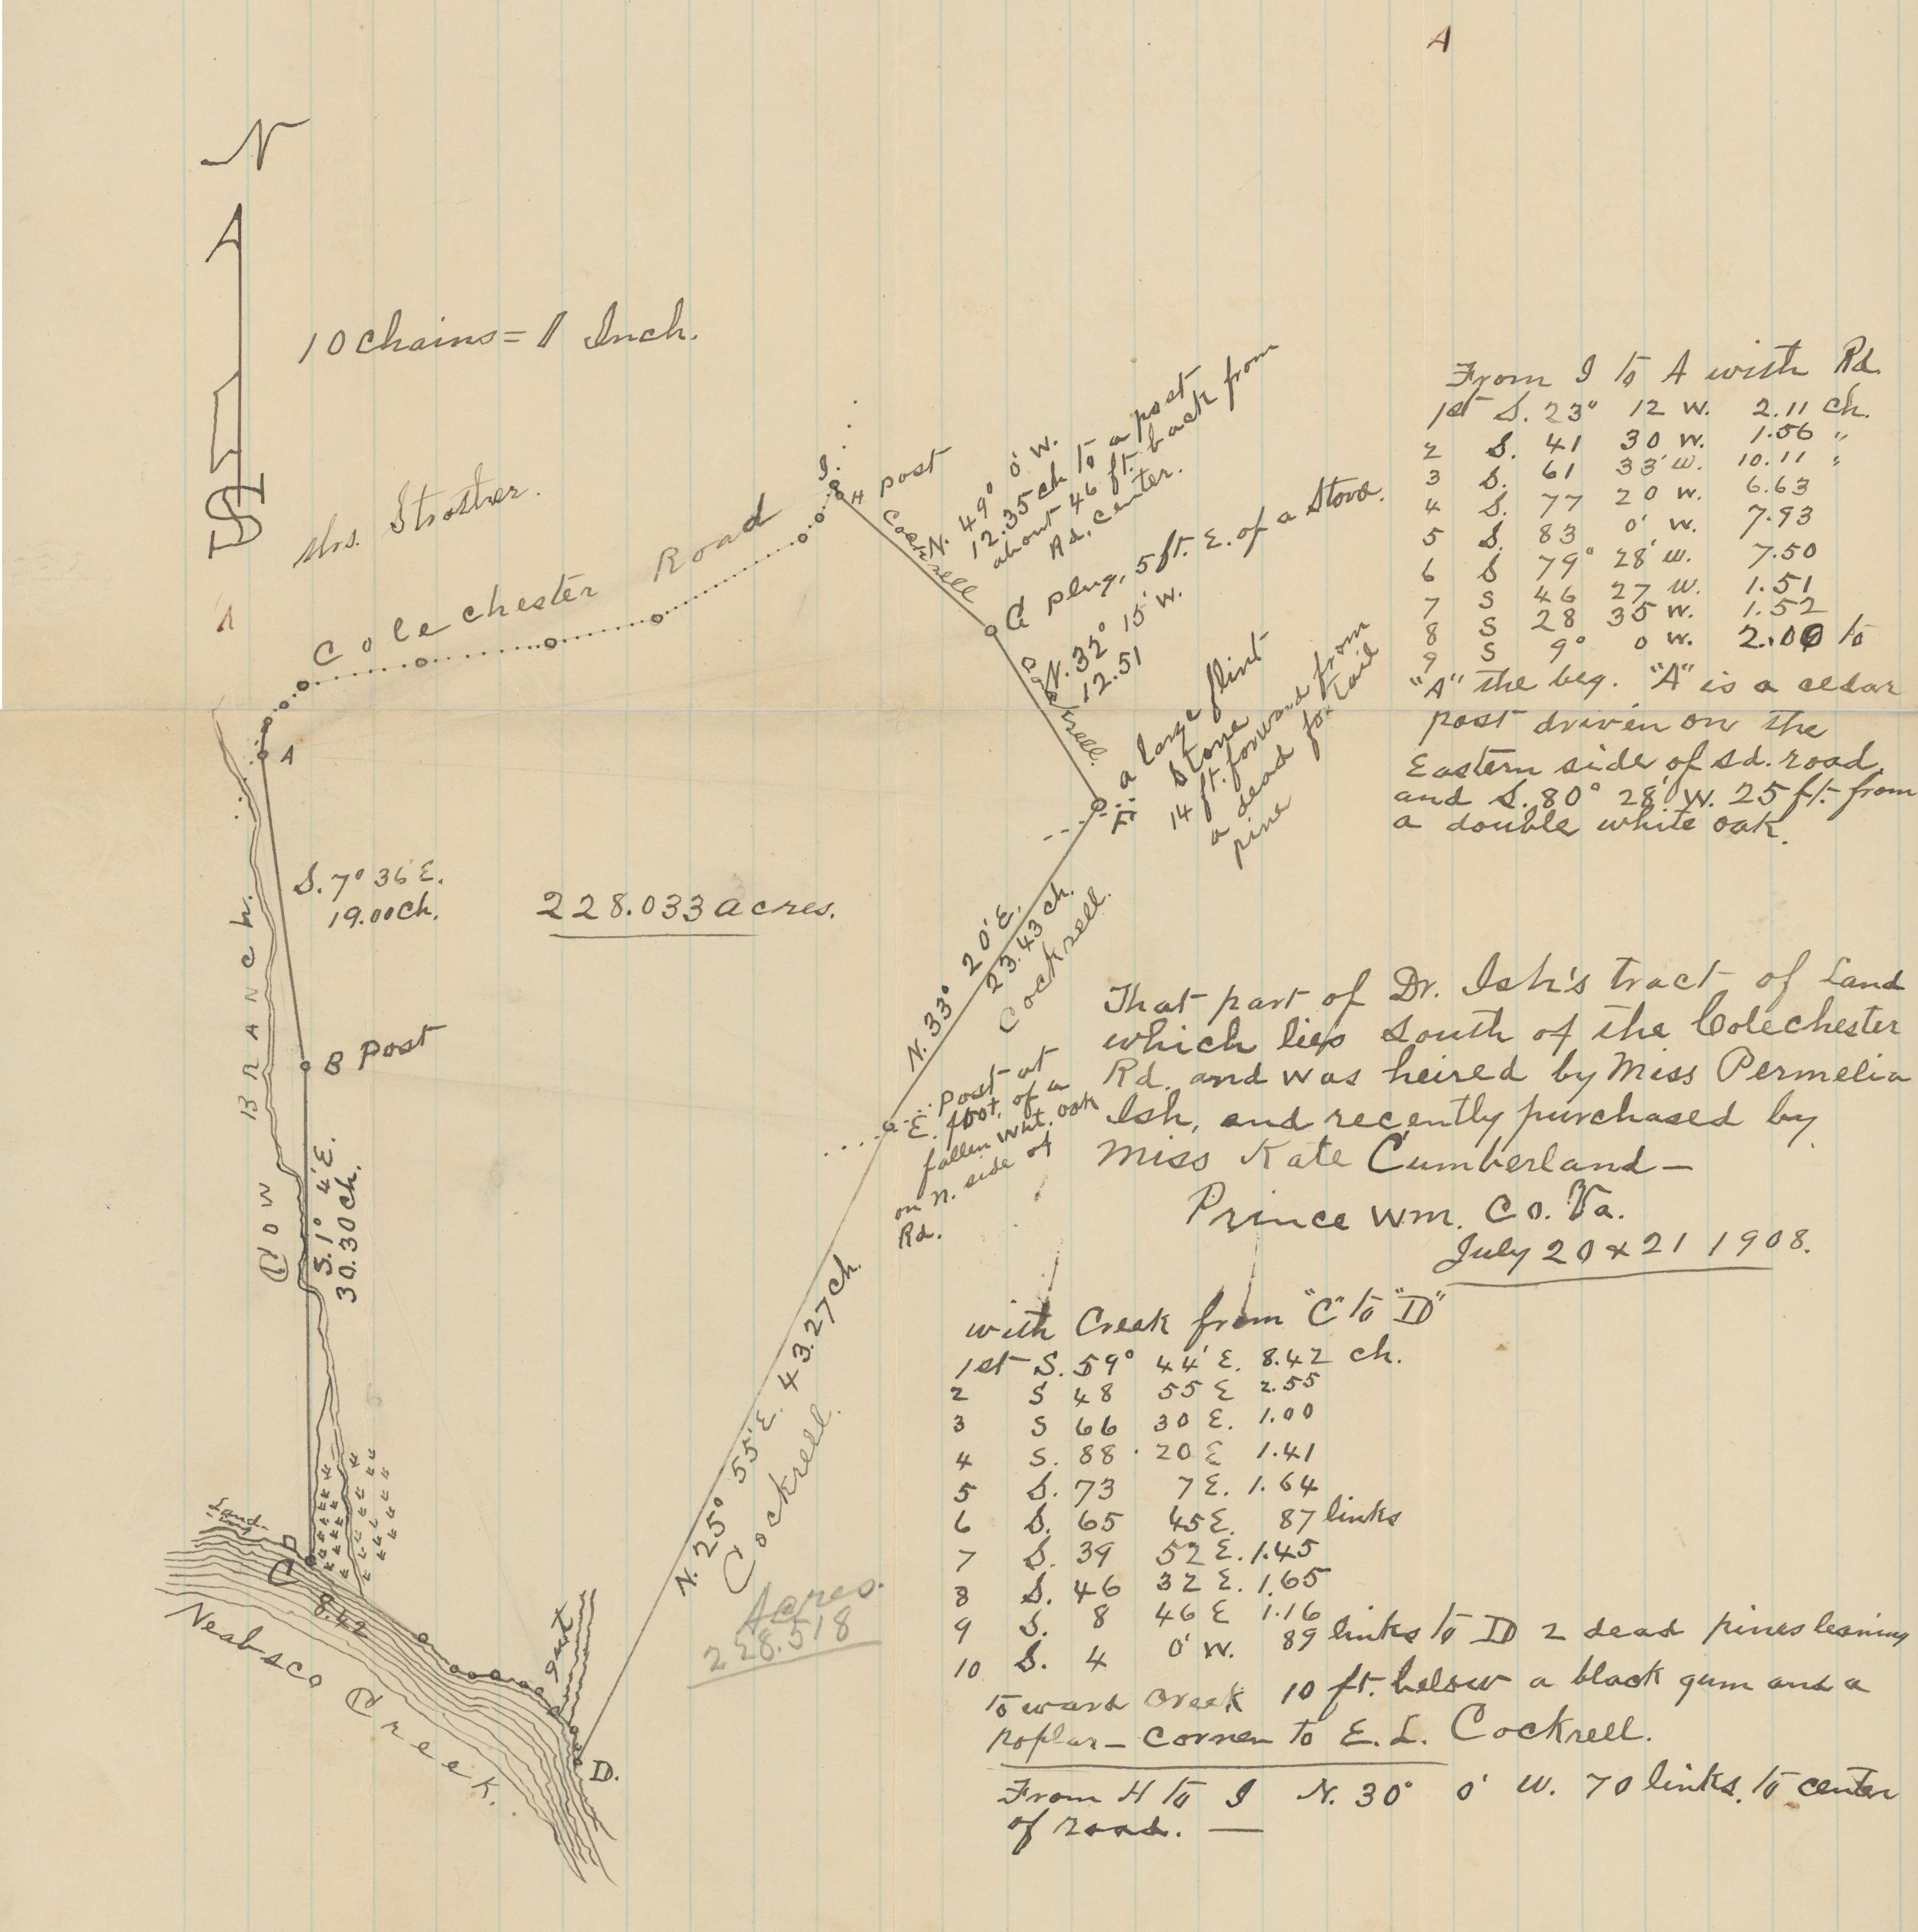 A
N
S
10 Chains = 1 Inch.
Mrs. Strother.
Colechester Road
I.
H post
Cockrell
N. 49° 0' W.
12.35 ch to a post
about 46 ft. back from
Rd. Center.
G plug, 5 ft. E. of a Stone.
N. 32° 15' W.
12.51
Cockrell.
F
a large flint
Stone
14 ft. forward from
a dead fox tail
pine
A
S. 7° 36' E.
19.00 Ch.
228.033 acres.
N. 33° 20' E.
23.43 ch.
Cockrell.
B post
COW BRANCH.
S. 1° 4' E.
30.30 Ch.
E. post at
foot of a
fallen wht. oak
on N. side of
Rd.
N. 25° 55' E. 43.27 ch.
Cockrell.
Acres.
228.518
C
8.42
Neabsco Creek.
gut
D.
From I to A with Rd.
1st S. 23° 12 W. 2.11 ch.
2 S. 41 30 W. 1.56 "
3 S. 61 33' W. 10.11 "
4 S. 77 20 W. 6.63
5 S. 83 0' W. 7.93
6 S 79° 28' W. 7.50
7 S 46 27 W. 1.51
8 S 28 35 W. 1.52
9 S 9° 0 W. 2.00 to
"A" the beg. "A" is a cedar
post driven on the
Eastern side of sd. road,
and S. 80° 28' W. 25 ft. from
a double white oak.
That part of Dr. Ish's tract of Land
which lies South of the Colechester
Rd. and was heired by Miss Permelia
Ish, and recently purchased by
Miss Kate Cumberland —
Prince Wm. Co. Va.
July 20 & 21 1908.
with Creek from "C" to "D"
1st S. 59° 44' E. 8.42 ch.
2 S 48 55 E 2.55
3 S 66 30 E. 1.00
4 S. 88 · 20 E 1.41
5 S. 73 7 E. 1.64
6 S. 65 45 E. 87 links
7 S. 39 52 E. 1.45
8 S. 46 32 E. 1.65
9 S. 8 46 E 1.16
10 S. 4 0' W. 89 links to D 2 dead pines leaning
toward Creek 10 ft. below a black gum and a
poplar — Corner to E. L. Cockrell.
From H to I N. 30° 0' W. 70 links. to center
of road. —